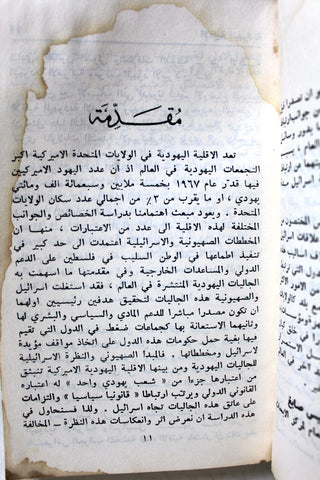 مُقَدِّمَة
تعد الاقلية اليهودية في الولايات المتحدة الاميركية اكبر
التجمعات اليهودية في العالم اذ ان عدد اليهود الاميركيين
فيها قدر عام ١٩٦٧ بخمسة ملايين وسبعمائة الف ومائتي
يهودي ، او ما يقرب من ٣٪ من اجمالي عدد سكان الولايات
المتحدة . ويعود مبعث اهتمامنا بدراسة الخصائص والجوانب
المختلفة لهذه الاقلية الى عدد من الاعتبارات ، منها ان
المخططات الصهيونية والاسرائيلية اعتمدت الى حد كبير في
تنفيذ اطماعها في الوطن السليب في فلسطين على الدعم
الدولي والمساعدات الخارجية وفي مقدمتها ما اسهمت به
الجاليات اليهودية المنتشرة في العالم . فقد استغلت اسرائيل
والصهيونية هذه الجاليات لتحقيق هدفين رئيسيين اولهما
ان تكون مصدرا مباشرا للدعم المادي والسياسي والبشري لها
وثانيهما الاستعانة بها كجماعات ضغط في الدول التي تقيم
فيها بغية حمل حكومات هذه الدول على اتخاذ مواقف مؤيدة
لاسرائيل ومخططاتها . فالمبدا الصهيوني والنظرة الاسرائيلية
للجاليات اليهودية ومن بينها الاقلية الاميركية تنبثق
من اعتبارها جزءا من « شعب يهودي واحد » له اعتباره
القانوني الدولي ويرتب ارتباطا « قانونيا سياسيا » والتزامات
على عاتق هذه الجاليات تجاه اسرائيل . ولذا فسنحاول في
هذه الدراسة ان نعرض اثر وانعكاسات هذه النظرة ــ المخالفة
١١